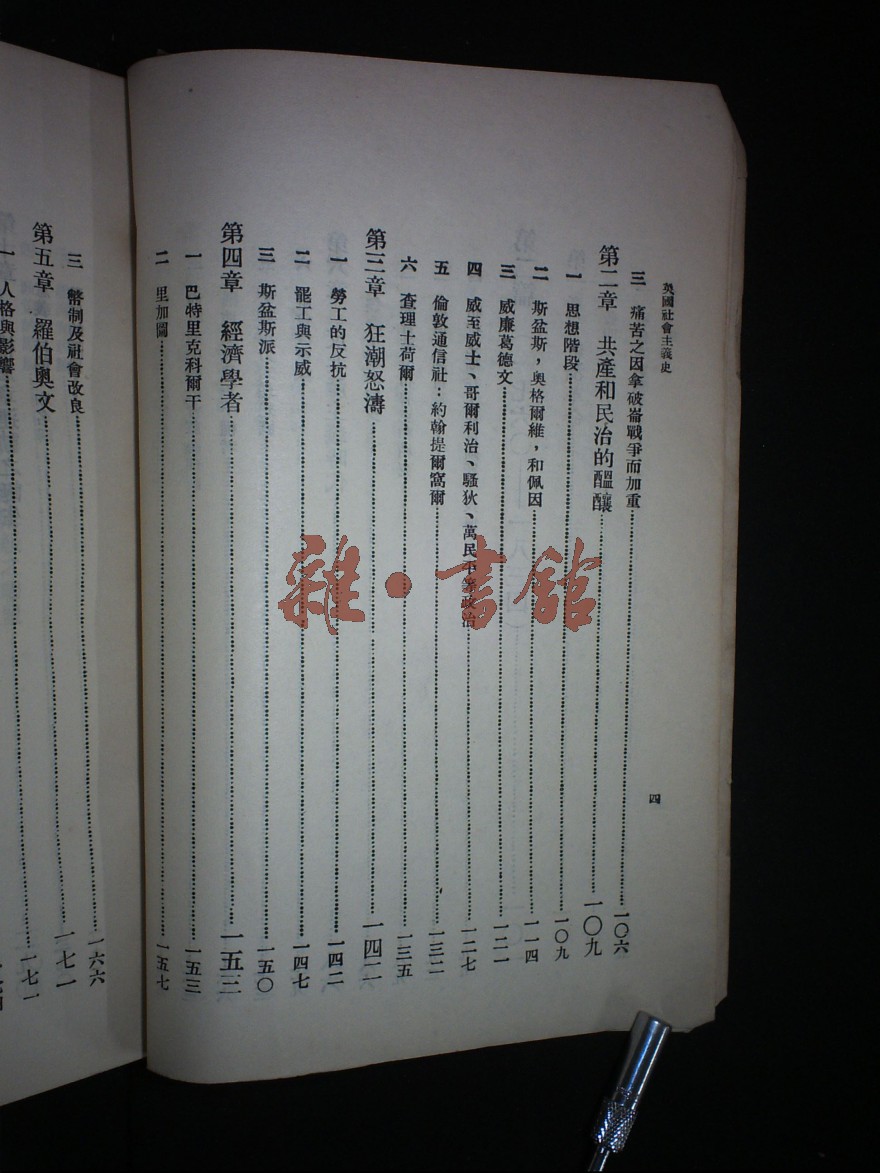 英國社會主義史
四
三　痛苦之因拿破崙戰爭而加重……一〇六
第二章　共產和民治的醞釀……一〇九
一　思想階段……一〇九
二　斯盆斯，奧格爾維，和佩因……一一四
三　威廉葛德文……一二一
四　威至威士、哥爾利治、騷狄、萬民平等政治……一二七
五　倫敦通信社：約翰提爾窩爾……一三二
六　查理士荷爾……一三五
第三章　狂潮怒濤……一四二
一　勞工的反抗……一四二
二　罷工與示威……一四七
三　斯盆斯派……一五〇
第四章　經濟學者……一五三
一　巴特里克科爾干……一五三
二　里加圖……一五七
三　幣制及社會改良……一六六
第五章　羅伯奧文……一七一
一　人格與影響……一七一
雜·書館